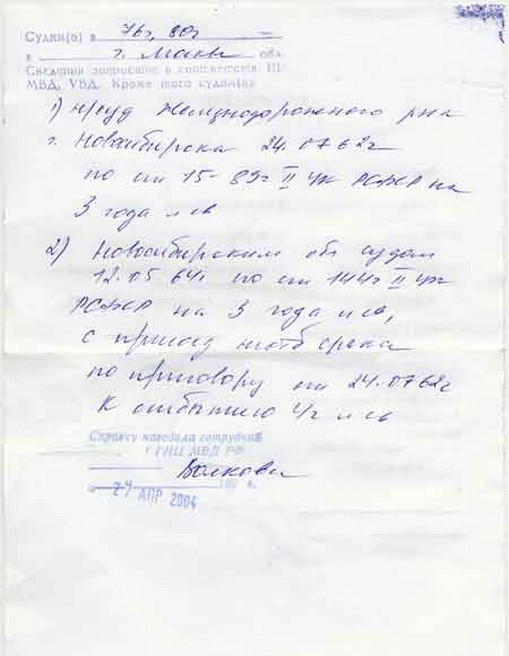 Судим(а) в 76г, 80г –
в г. Москве обл.
Сведения запросите в соответств. ИЦ
МВД, УВД. Кроме того судим(а):
1) нсуд Железнодорожного р-на
г. Новосибирска 24.07.62г
по ст 15-89ч II УК РСФСР на
3 года л св
2) Новосибирским обл судом
12.05.64г по ст 144ч II УК
РСФСР на 3 года л св,
с присоед срока
по приговору от 24.07.62г
К отбытию 4г л св
Справку наводила сотрудник
ГИЦ МВД РФ
27 АПР 2004